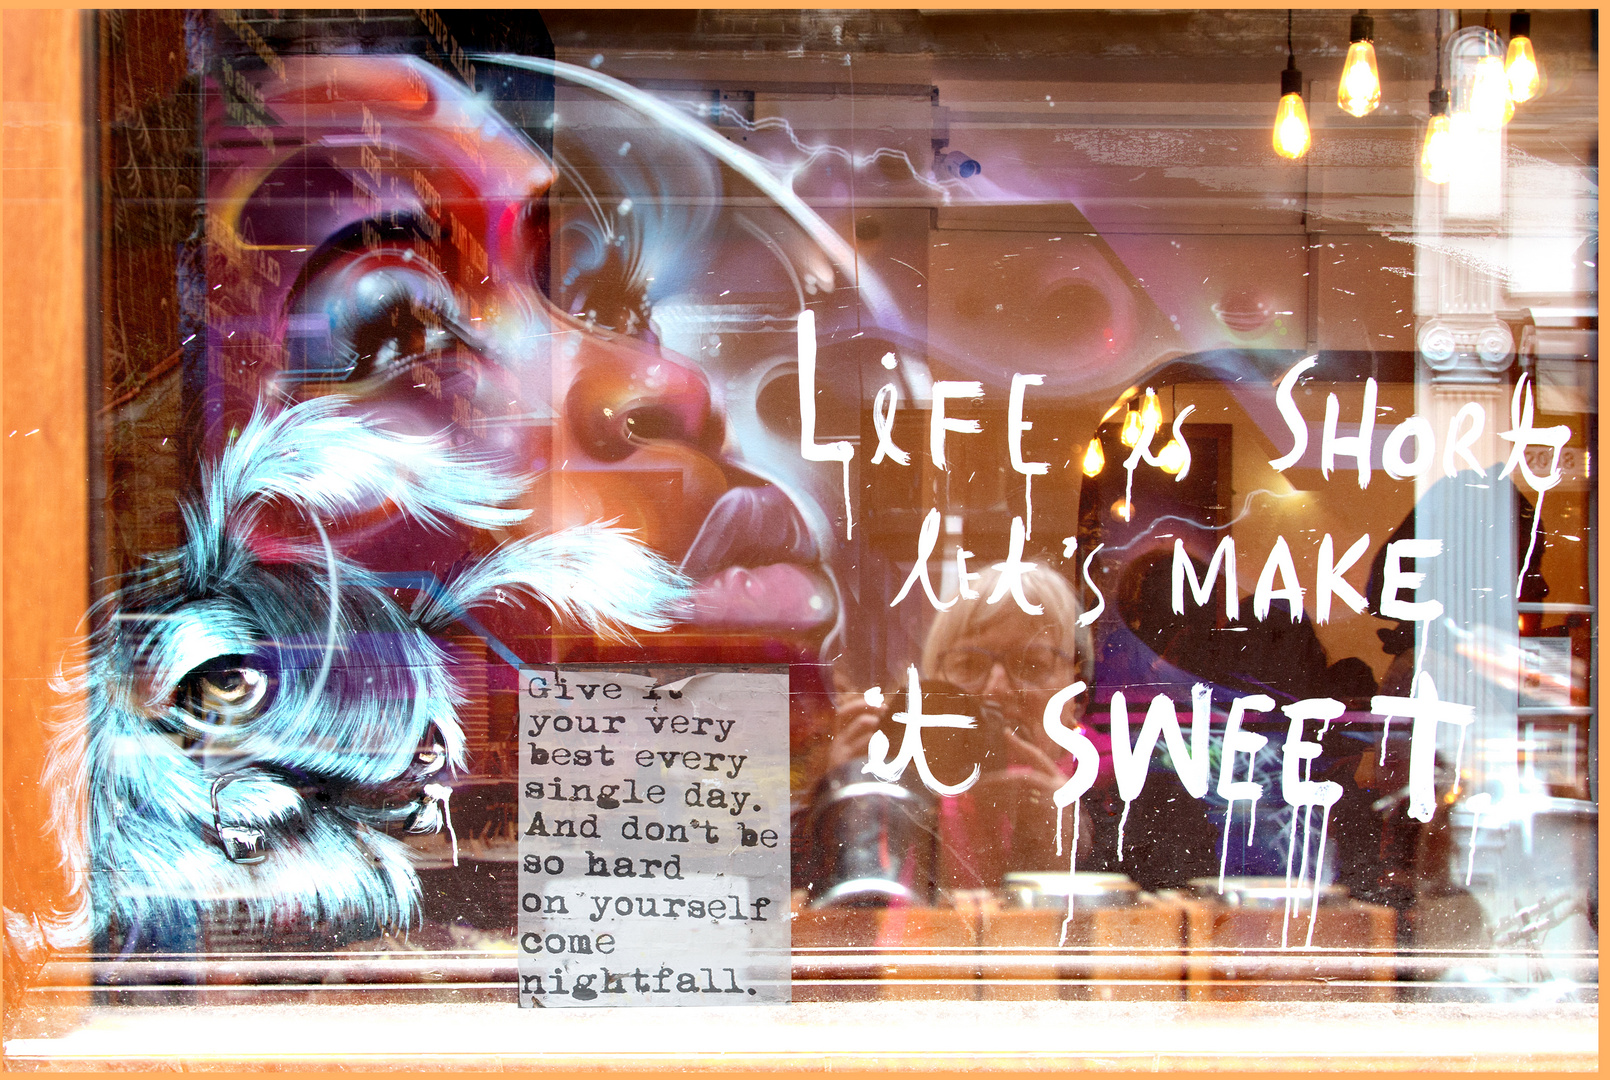 LiFE is SHORt
lEt's MAKE
it SWEET
Give it
your very
best every
single day.
And don't be
so hard
on yourself
come
nightfall.